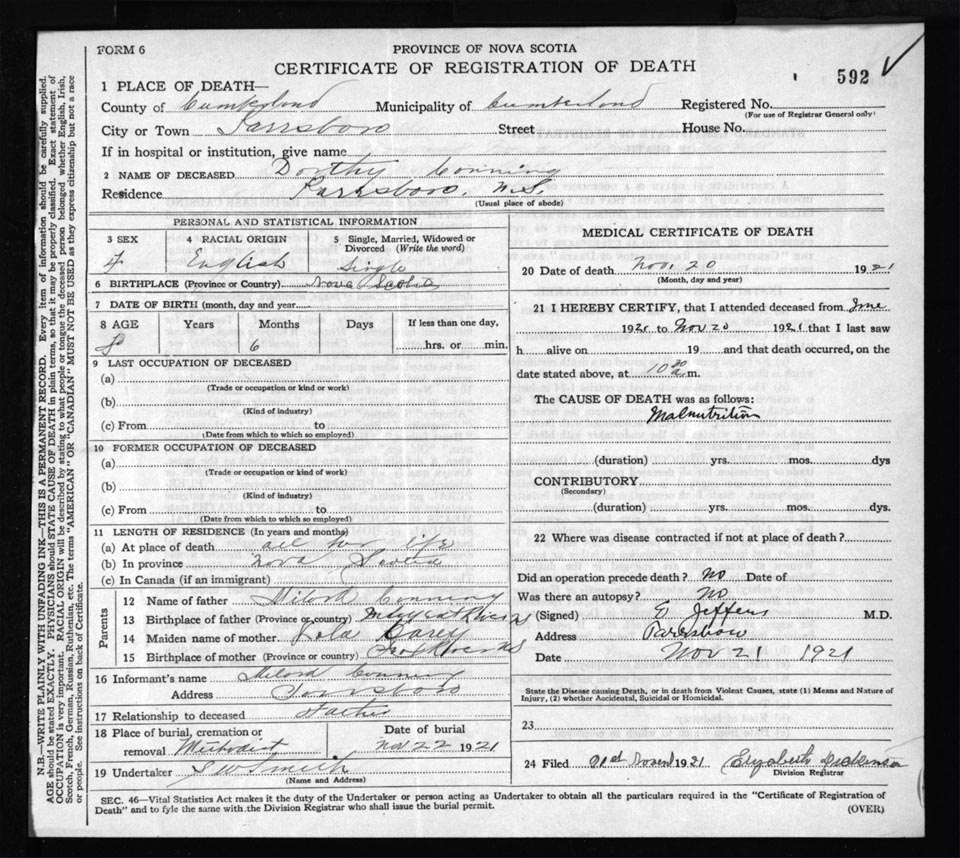 FORM 6
PROVINCE OF NOVA SCOTIA
CERTIFICATE OF REGISTRATION OF DEATH
592
1 PLACE OF DEATH—
County of Cumberland Municipality of Cumberland Registered No.
(For use of Registrar General only)
City or Town Parrsboro Street House No.
If in hospital or institution, give name
2 NAME OF DECEASED Dorothy Conning
Residence Parrsboro. N.S.
(Usual place of abode)
PERSONAL AND STATISTICAL INFORMATION
3 SEX 4 RACIAL ORIGIN 5 Single, Married, Widowed or Divorced (Write the word)
F English Single
6 BIRTHPLACE (Province or Country) Nova Scotia
7 DATE OF BIRTH (month, day and year)
8 AGE Years Months Days If less than one day,
6 hrs. or min.
9 LAST OCCUPATION OF DECEASED
(a)
(Trade or occupation or kind or work)
(b)
(Kind of industry)
(c) From to
(Date from which to which so employed)
10 FORMER OCCUPATION OF DECEASED
(a)
(Trade or occupation or kind of work)
(b)
(Kind of industry)
(c) From to
(Date from which to which so employed)
11 LENGTH OF RESIDENCE (In years and months)
(a) At place of death all her life
(b) In province Nova Scotia
(c) In Canada (if an immigrant)
Parents
12 Name of father Conning
13 Birthplace of father (Province or country)
14 Maiden name of mother Lola
15 Birthplace of mother (Province or country)
16 Informant's name Conning
Address Parrsboro
17 Relationship to deceased Father
18 Place of burial, cremation or Date of burial
removal Methodist Nov 22 1921
19 Undertaker S W Smith
(Name and Address)
MEDICAL CERTIFICATE OF DEATH
20 Date of death Nov. 20 1921
(Month, day and year)
21 I HEREBY CERTIFY, that I attended deceased from June
192 to Nov 20 1921 that I last saw
h alive on 19 and that death occurred, on the
date stated above, at 10 30 a.m.
The CAUSE OF DEATH was as follows:
Malnutrition
(duration) yrs. mos. dys
CONTRIBUTORY
(Secondary)
(duration) yrs. mos. dys.
22 Where was disease contracted if not at place of death?
Did an operation precede death? No Date of
Was there an autopsy? No
(Signed) M.D.
Address Parrsboro
Date Nov 21 1921
State the Disease causing Death, or in death from Violent Causes, state (1) Means and Nature of
Injury, (2) whether Accidental, Suicidal or Homicidal.
23
24 Filed 21st 1921 Elizabeth
Division Registrar
SEC. 46—Vital Statistics Act makes it the duty of the Undertaker or person acting as Undertaker to obtain all the particulars required in the "Certificate of Registration of
Death" and to fyle the same with the Division Registrar who shall issue the burial permit. (OVER)
N.B.—WRITE PLAINLY WITH UNFADING INK—THIS IS A PERMANENT RECORD. Every item of information should be carefully supplied.
AGE should be stated EXACTLY. PHYSICIANS should STATE CAUSE OF DEATH in plain terms, so that it may be properly classified. Exact statement of
OCCUPATION is very important. RACIAL ORIGIN will be described by stating to what people or tongue the deceased person belonged whether English, Irish,
Scotch, French, German, Russian, Ruthenian, etc. The terms "AMERICAN" OR "CANADIAN" MUST NOT BE USED as they express citizenship but not a race
or people. See instructions on back of Certificate.